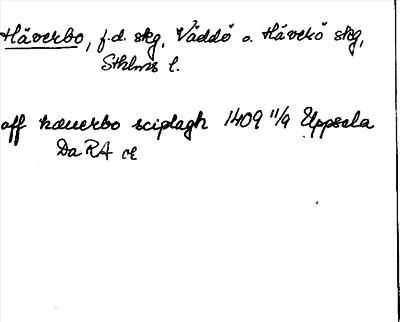 Häverbo, f.d. skg, Väddö o. Häverö skg,
Sthlms l.
aff hæuerbo sciplagh 1409 11/9 Uppsala
Da RA or